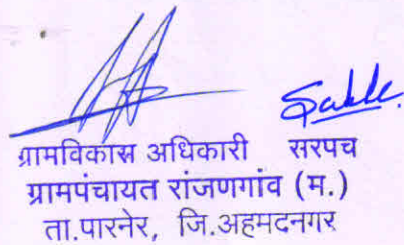 ग्रामविकास अधिकारी सरपच
ग्रामपंचायत रांजणगांव (म.)
ता.पारनेर, जि.अहमदनगर